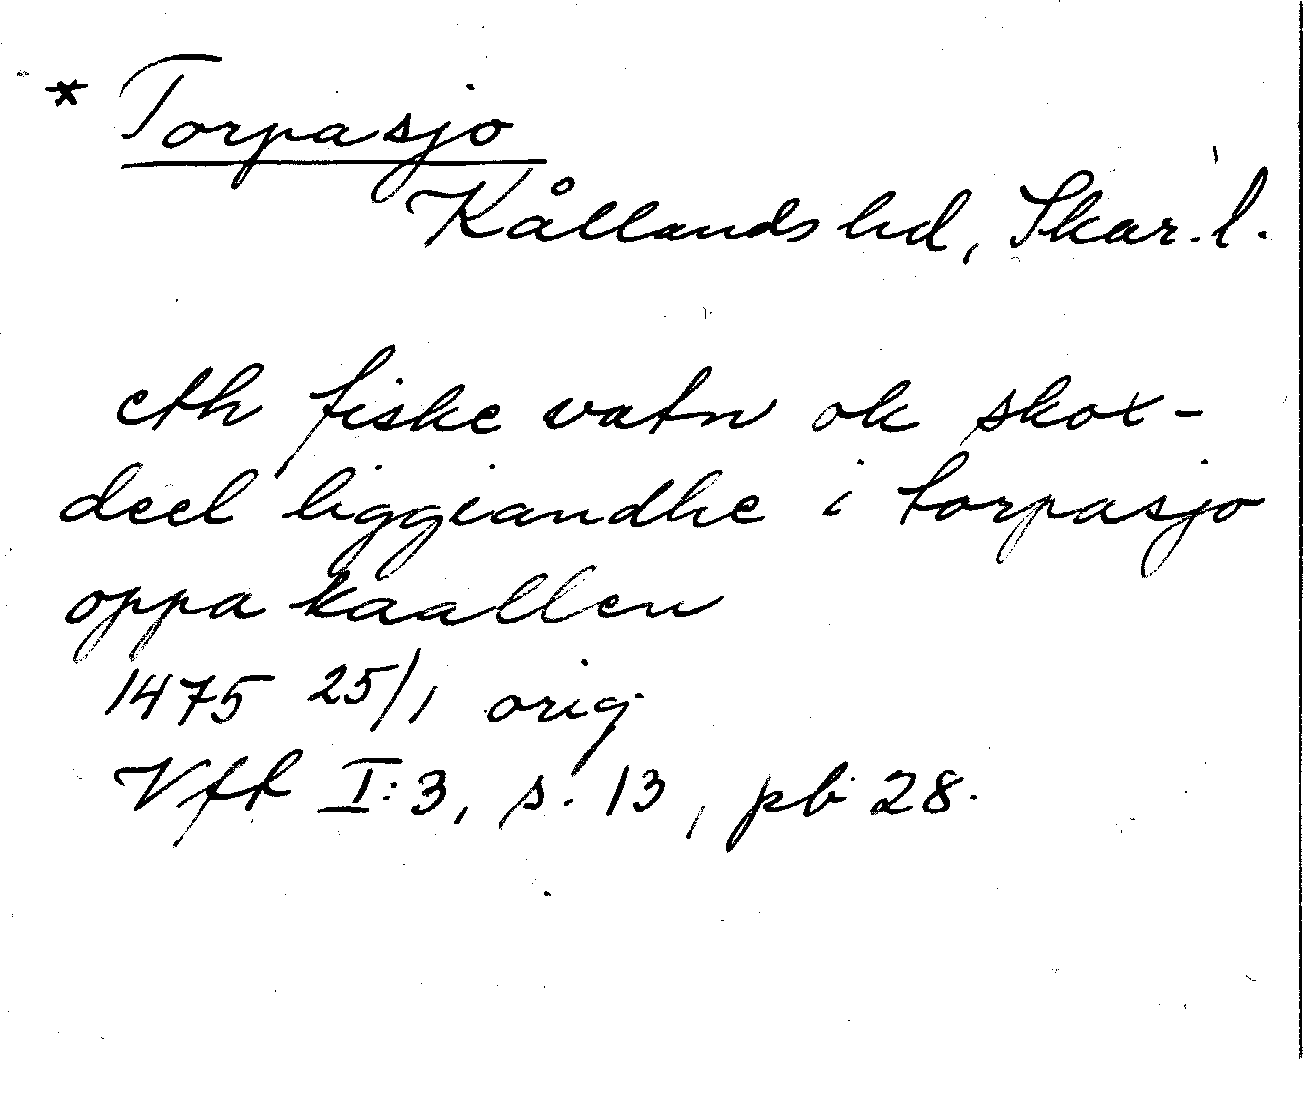 * Torpasjo
Kållands hd, Skar. l.
eth fiske vatn ok skox-
deel liggiandhe i torpasjo
oppa kaallen
1475 25/1 orig
Vft I:3, s. 13, pb 28.